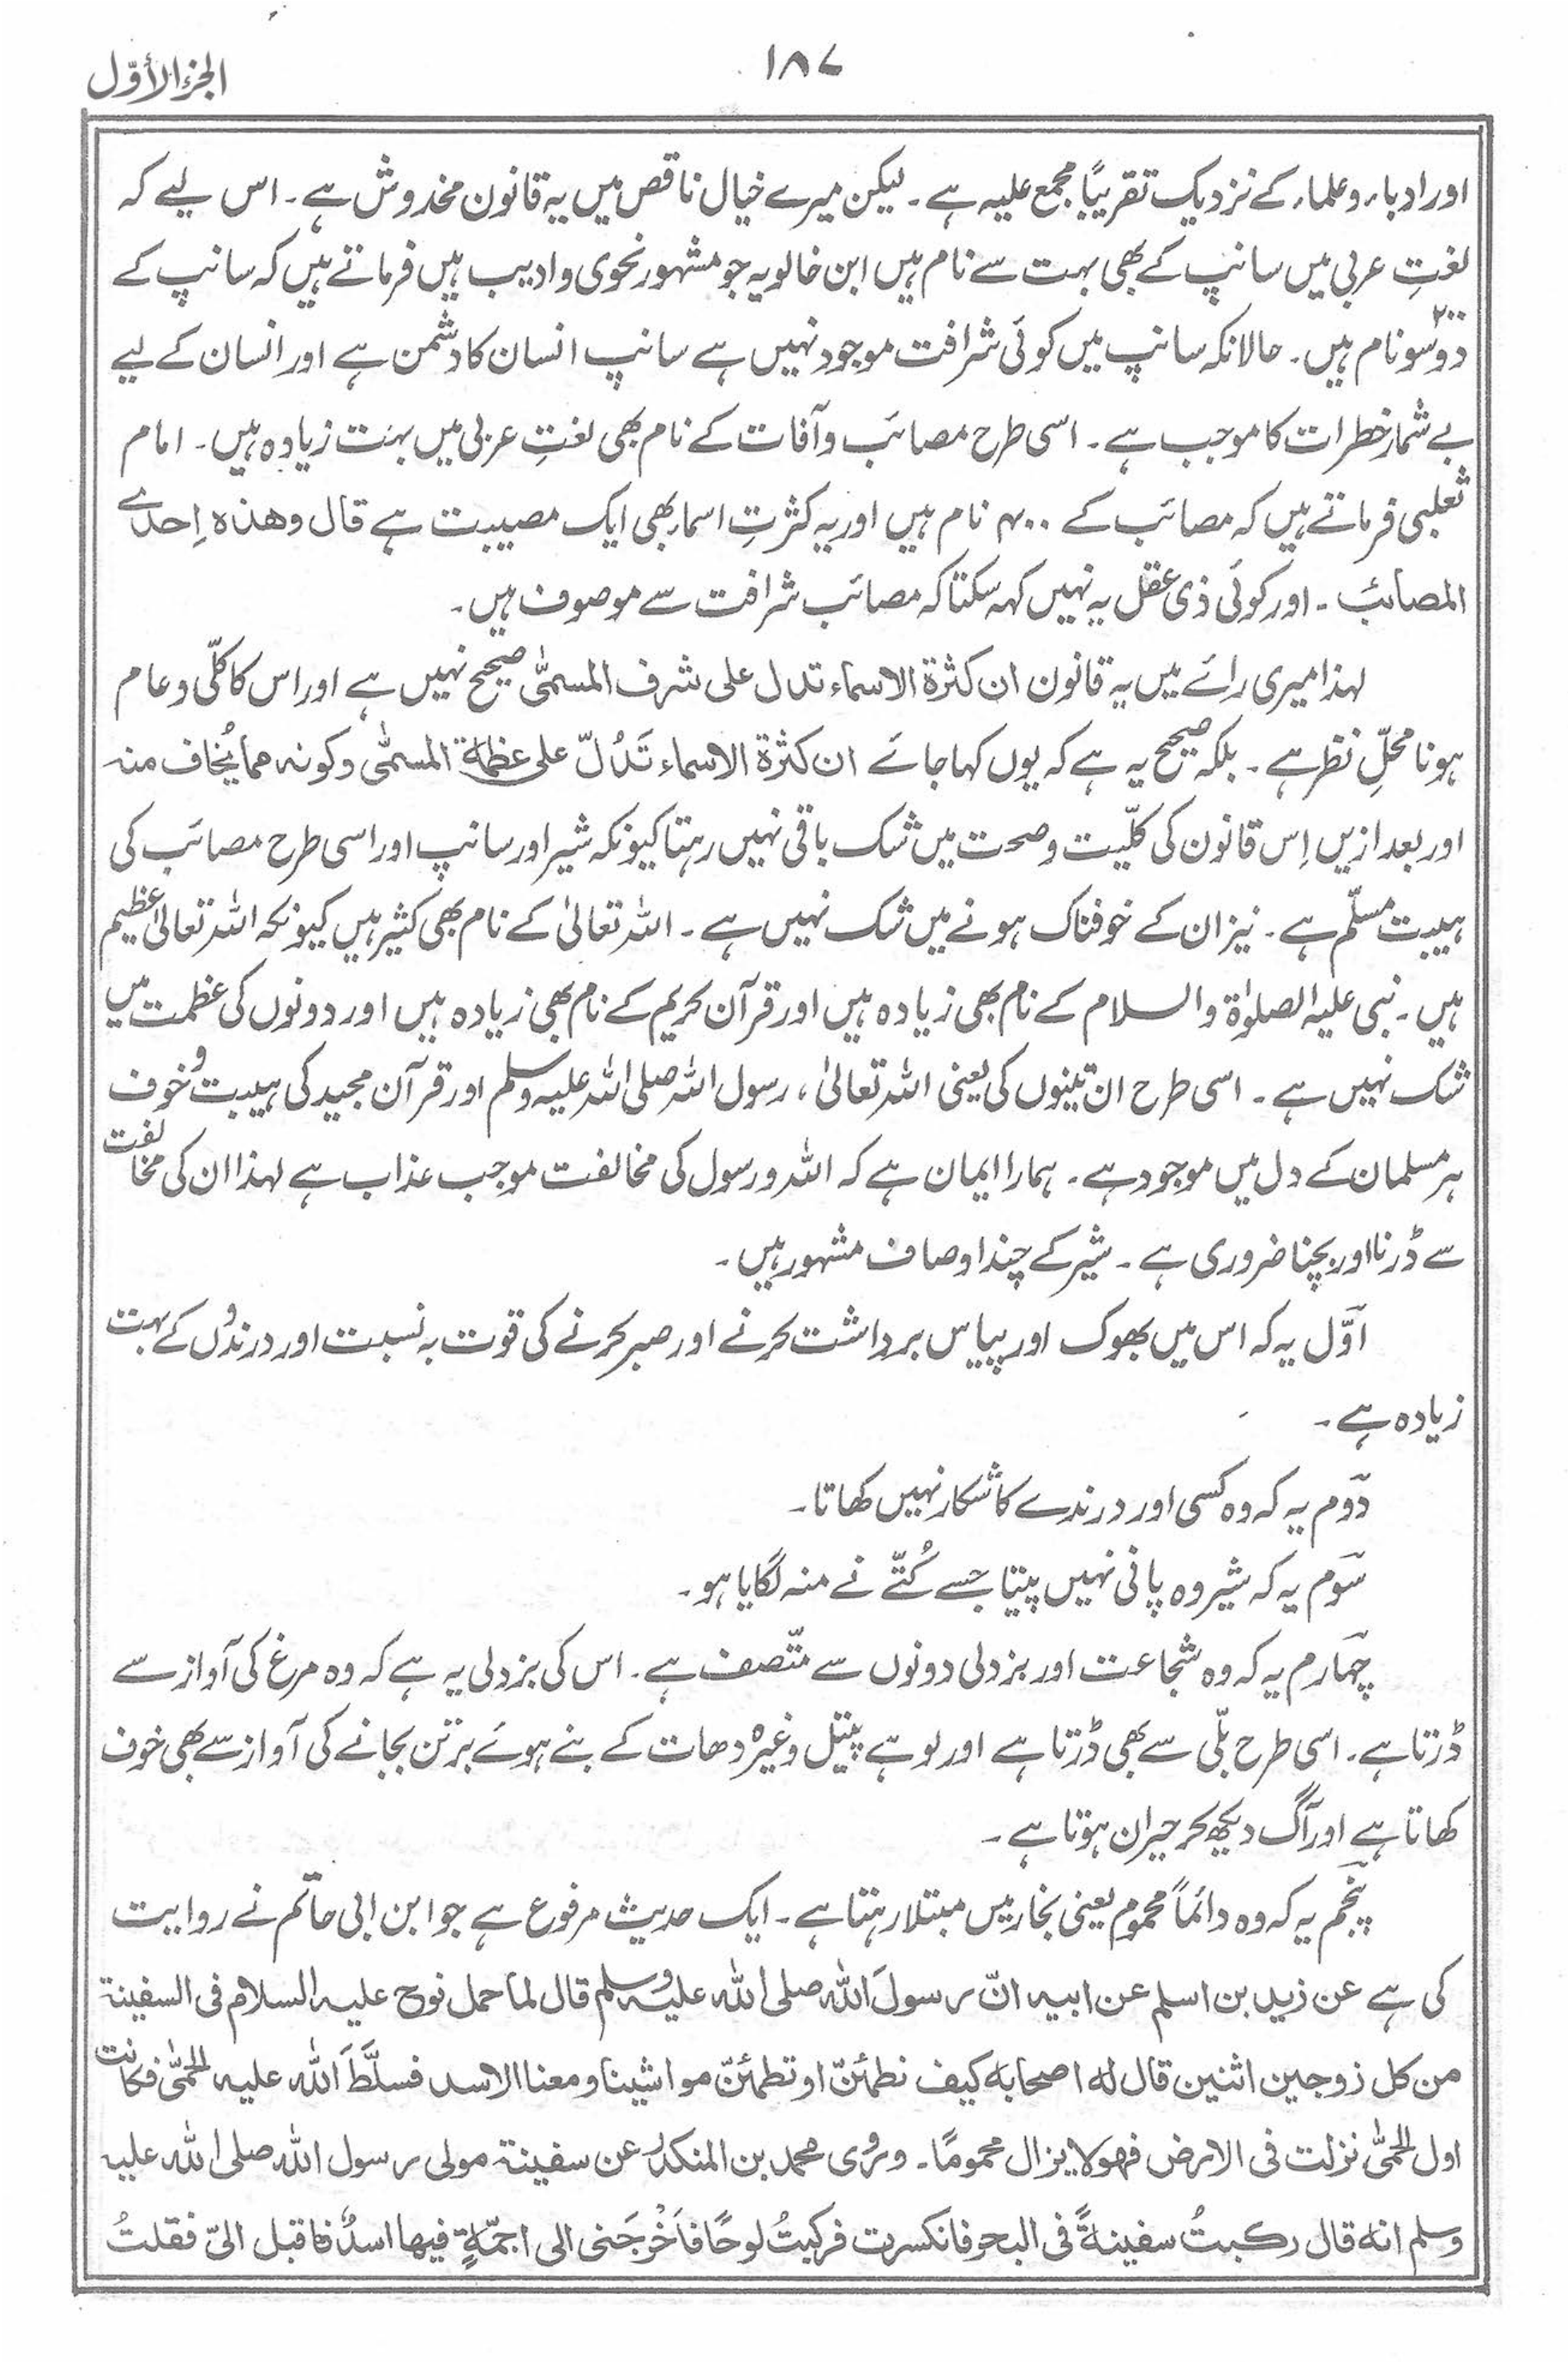 الجزء الأوّل
۱۸۷
اور ادباء و علماء کے نزدیک تقریبًا مجمع علیہ ہے۔ لیکن میرے خیال ناقص میں یہ قانون مخدوش ہے۔ اس لیے کہ
لغتِ عربی میں سانپ کے بھی بہت سے نام ہیں ابن خالویہ جو مشہور نحوی و ادیب ہیں فرماتے ہیں کہ سانپ کے
دو سو ۲۰۰ نام ہیں۔ حالانکہ سانپ میں کوئی شرافت موجود نہیں ہے سانپ انسان کا دشمن ہے اور انسان کے لیے
بے شمار خطرات کا موجب ہے۔ اسی طرح مصائب و آفات کے نام بھی لغتِ عربی میں بہت زیادہ ہیں۔ امام
ثعلبی فرماتے ہیں کہ مصائب کے ۴۰۰ نام ہیں اور یہ کثرتِ اسماء بھی ایک مصیبت ہے قال وھذہ اِحدے
المصائب۔ اور کوئی ذی عقل یہ نہیں کہہ سکتا کہ مصائب شرافت سے موصوف ہیں۔
لہذا میری رائے میں یہ قانون ان کثرۃ الاسماء تدل علی شرف المسمّٰی صحیح نہیں ہے اور اس کا کلّی و عام
ہونا محلِّ نظر ہے۔ بلکہ صحیح یہ ہے کہ یوں کہا جائے ان کثرۃ الاسماء تَدُلّ علی عظمۃ المسمّٰی وکونہ مما یُخاف منہ
اور بعد ازیں اِس قانون کی کلّیت و صحت میں شک باقی نہیں رہتا کیونکہ شیر اور سانپ اور اسی طرح مصائب کی
ہیبت مسلّم ہے۔ نیز ان کے خوفناک ہونے میں شک نہیں ہے۔ اللہ تعالیٰ کے نام بھی کثیر ہیں کیونکہ اللہ تعالیٰ عظیم
ہیں۔ نبی علیہ الصلوٰۃ والسلام کے نام بھی زیادہ ہیں اور قرآن کریم کے نام بھی زیادہ ہیں اور دونوں کی عظمت میں
شک نہیں ہے۔ اسی طرح ان تینوں کی یعنی اللہ تعالیٰ، رسول اللہ صلی اللہ علیہ وسلم اور قرآن مجید کی ہیبت و خوف
ہر مسلمان کے دل میں موجود ہے۔ ہمارا ایمان ہے کہ اللہ و رسول کی مخالفت موجب عذاب ہے لہذا ان کی مخالفت
سے ڈرنا اور بچنا ضروری ہے۔ شیر کے چند اوصاف مشہور ہیں۔
اوّل یہ کہ اس میں بھوک اور پیاس برداشت کرنے اور صبر کرنے کی قوت بہ نسبت اور درندوں کے بہت
زیادہ ہے۔
دوم یہ کہ وہ کسی اور درندے کا شکار نہیں کھاتا۔
سوم یہ کہ شیر وہ پانی نہیں پیتا جسے کُتّے نے منہ لگایا ہو۔
چہارم یہ کہ وہ شجاعت اور بزدلی دونوں سے متّصف ہے۔ اس کی بزدلی یہ ہے کہ وہ مرغ کی آواز سے
ڈرتا ہے۔ اسی طرح بلّی سے بھی ڈرتا ہے اور لوہے پیتل وغیرہ دھات کے بنے ہوئے برتن بجانے کی آواز سے بھی خوف
کھاتا ہے اور آگ دیکھ کر حیران ہوتا ہے۔
پنجم یہ کہ وہ دائماً محموم یعنی بخار میں مبتلا رہتا ہے۔ ایک حدیث مرفوع ہے جو ابن ابی حاتم نے روایت
کی ہے عن زید بن اسلم عن ابیہ انّ رسولَ اللہ صلی اللہ علیہ وسلم قال لما حمل نوح علیہ السلام فی السفینۃ
من کل زوجین اثنین قال لہ اصحابہ کیف نطمئنّ او تطمئنّ مواشینا ومعنا الاسد فسلَّطَ اللہ علیہ الحمّٰی فکانت
اول الحمّٰی نزلت فی الارض فھو لا یزال محمومًا۔ وروٰی محمد بن المنکدر عن سفینۃ مولی رسول اللہ صلی اللہ علیہ
وسلم انہ قال رکبتُ سفینۃً فی البحر فانکسرت فرکبتُ لوحًا فاَخْرَجَنی الی اجمّۃٍ فیھا اسدٌ فاقبل الیّ فقلتُ